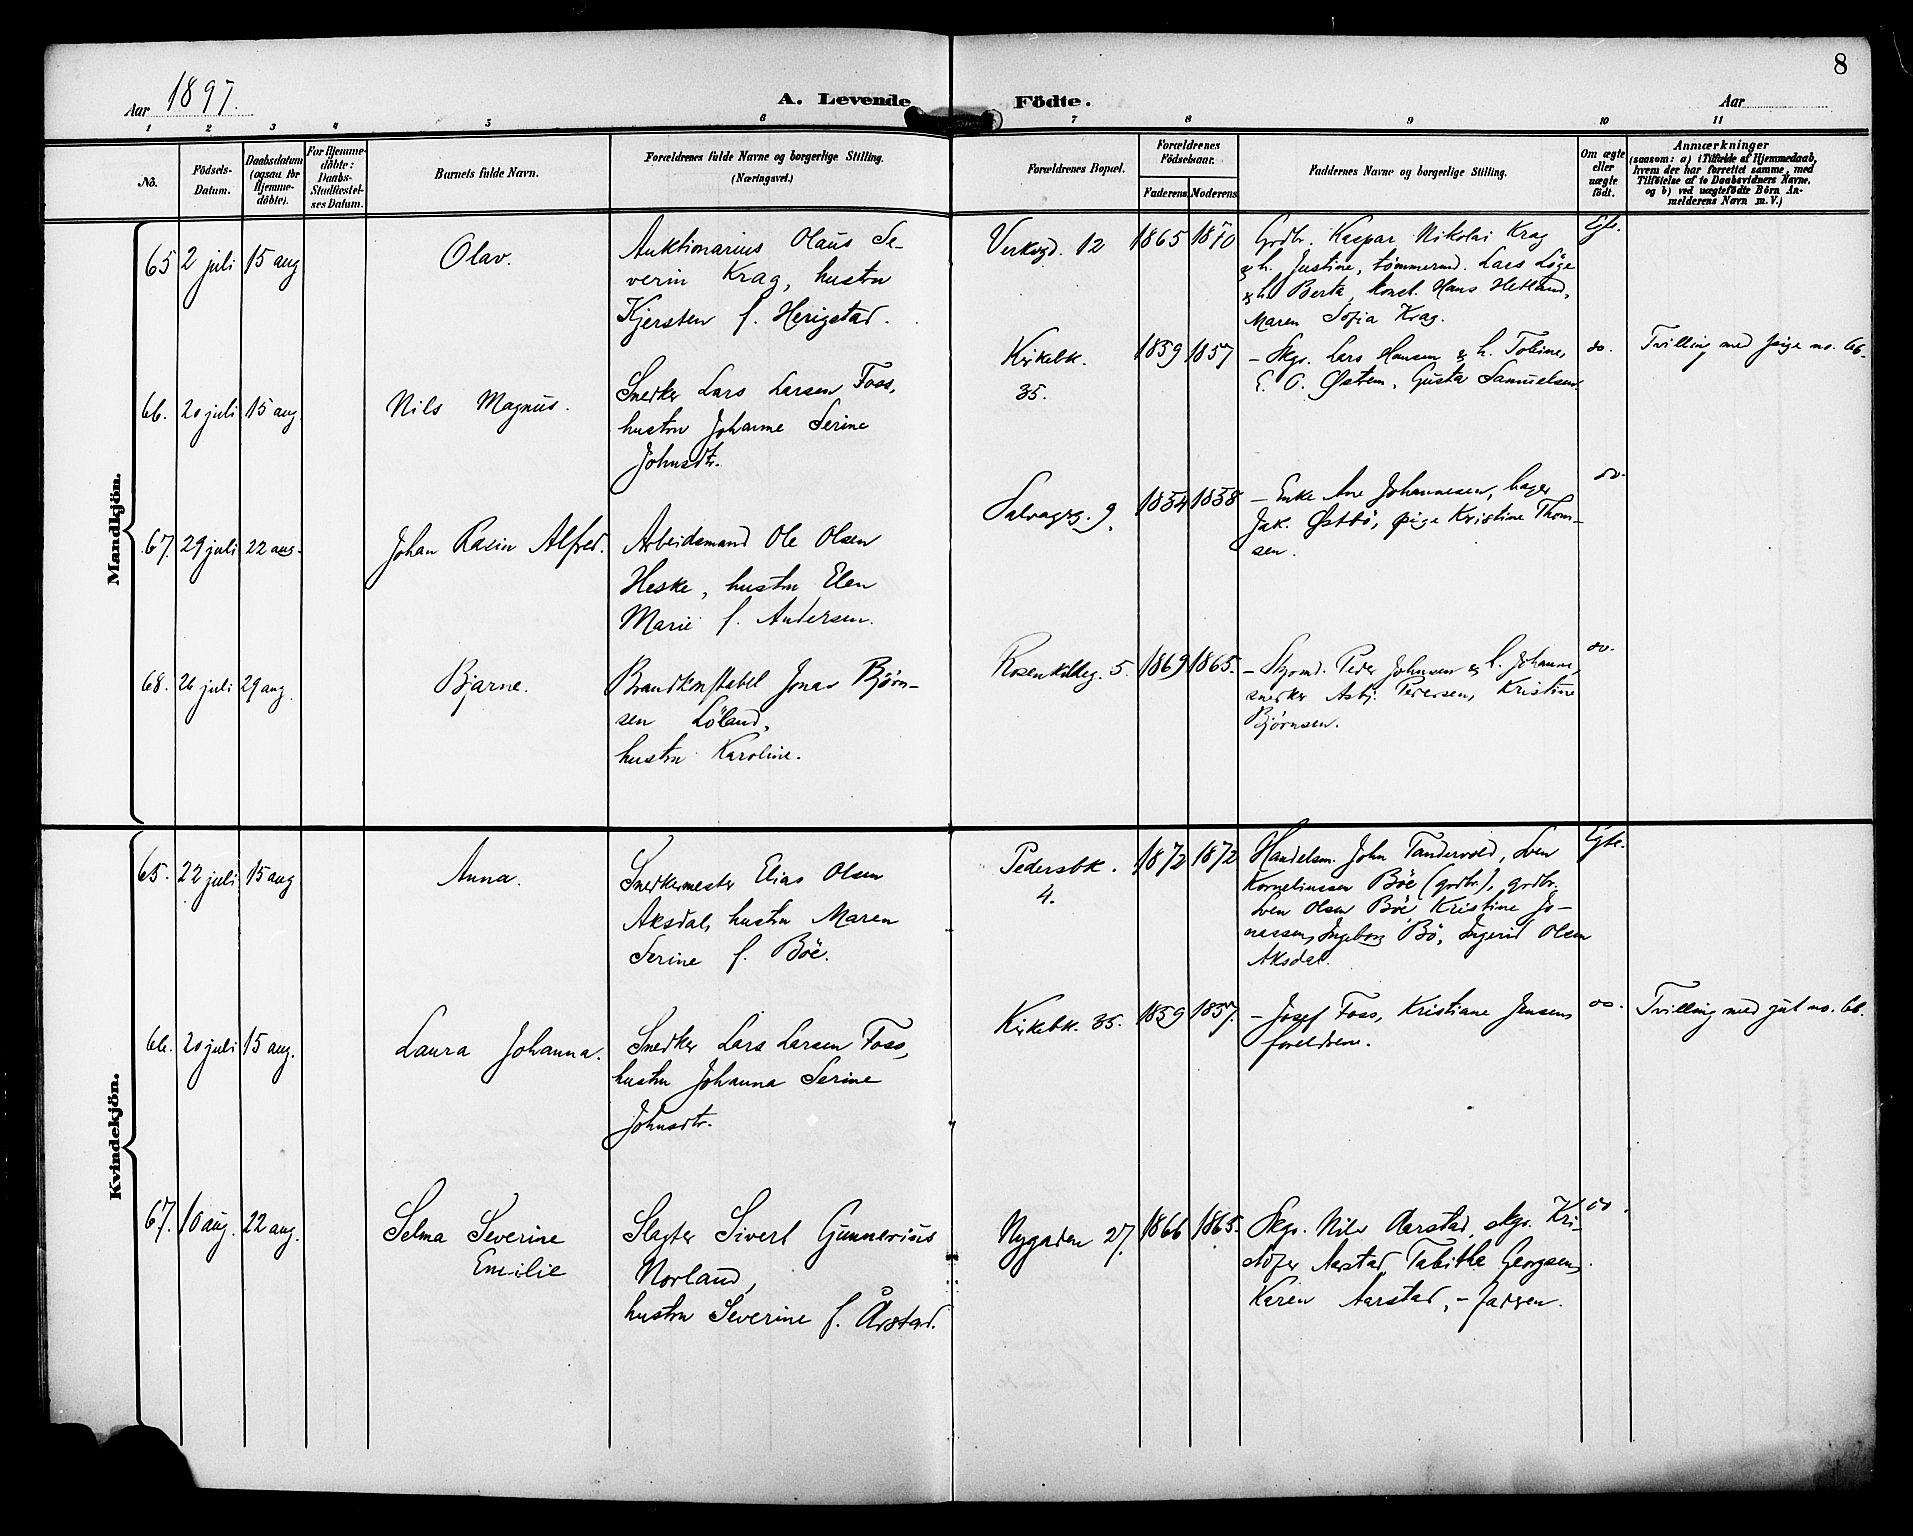 8
Aar 1897.
A. Levende Födte.
Aar
1 2 3 4 5 6 7 8 9 10 11
No.
Födsels-
Datum.
Daabsdatum
(ogsaa for
Hjemme-
döbte).
For Hjemme-
döbte:
Daabs-
Stadfæstel-
ses Datum.
Barnets fulde Navn.
Forældrenes fulde Navne og borgerlige Stilling.
(Næringsvei.)
Forældrenes Bopæl.
Forældrenes
Födselsaar.
Faderens
Moderens
Faddernes Navne og borgerlige Stilling.
Om ægte
eller
uægte
födt.
Anmærkninger
(saasom: a) i Tilfælde af Hjemmedaab,
hvem der har forrettet samme, med
Tilföielse af to Daabsvidners Navne,
og b) ved uægtefödte Börn An-
melderens Navn m.V.)
Mandkjön.
65 2 juli 15 aug
Olav.
Auktionarius Olaus Se-
verin Krag, hustru
Kjersten f. Herigstad.
Verksgd. 12
1865 1870
Grdbr. Kaspar Nikolai Krag
& h. Justine, tømmermd. Lars Löge
& h. Berta, konst. Hans Hetland,
Maren Sofia Krag.
Egte.
66. 20 juli 15 aug.
Nils Magnus.
Snedker Lars Larsen Foss,
hustru Johanne Serine
Johnsdtr.
Kirkebk.
35.
1859 1857
- Skgr. Lars Hansen & h. Tobine,
E. O. Østrem, Gusta Samuelsen
do.
Tvilling med pige no. 66.
67. 29 juli 22 aug.
Johan Rasin Alfred.
Arbeidsmand Ole Olsen
Heske, hustru Elen
Marie f. Andersen.
Salvagrg. 9.
1854 1858
- Enke Ane Johannesen, bager
Jak. Østbö, pige Kristine Thom-
sen.
do.
68. 26 juli 29 aug.
Bjarne.
Brandkonstabel Jonas Bjørn-
sen Löland,
hustru Karoline.
Rosenkildeg. 5.
1869 1865.
- Styrmd. Peder Johnsen & h. Johanne,
snedker Asbj. Pedersen, Kristine
Bjørnsen.
do.
Kvindekjön.
65. 22 juli 15 aug
Anna.
Snedkermester Elias Olsen
Aksdal, hustru Maren
Serine f. Böe.
Pedersbk.
4.
1872 1872
Handelsm. John Tandervold, Sven
Korneliussen Böe (grdbr.), grdbr.
Sven Olsen Böe, Kristine Jo-
nassen, Ingeborg Bö, Ingerid Olsen
Aksdal.
Egte.
66. 20 juli 15 aug.
Laura Johanna.
Snedker Lars Larsen Foss,
hustru Johanna Serine
Johnsdtr.
Kirkebk. 35.
1859 1857.
- Josef Foss, Kristiane Jensen,
foreldrene.
do.
Tvilling med gut no. 66.
67. 10 aug. 22 aug.
Selma Severine
Emilie
Slagter Sivert Gunnerius
Norland,
hustru Severine f. Årstad.
Nygaden 27.
1866 1865.
Skgr. Nils Aarstad, skgr. Kri-
stofer Aarstad, Tabitha Georgsen,
Karen Aarstad, - faderen.
do.